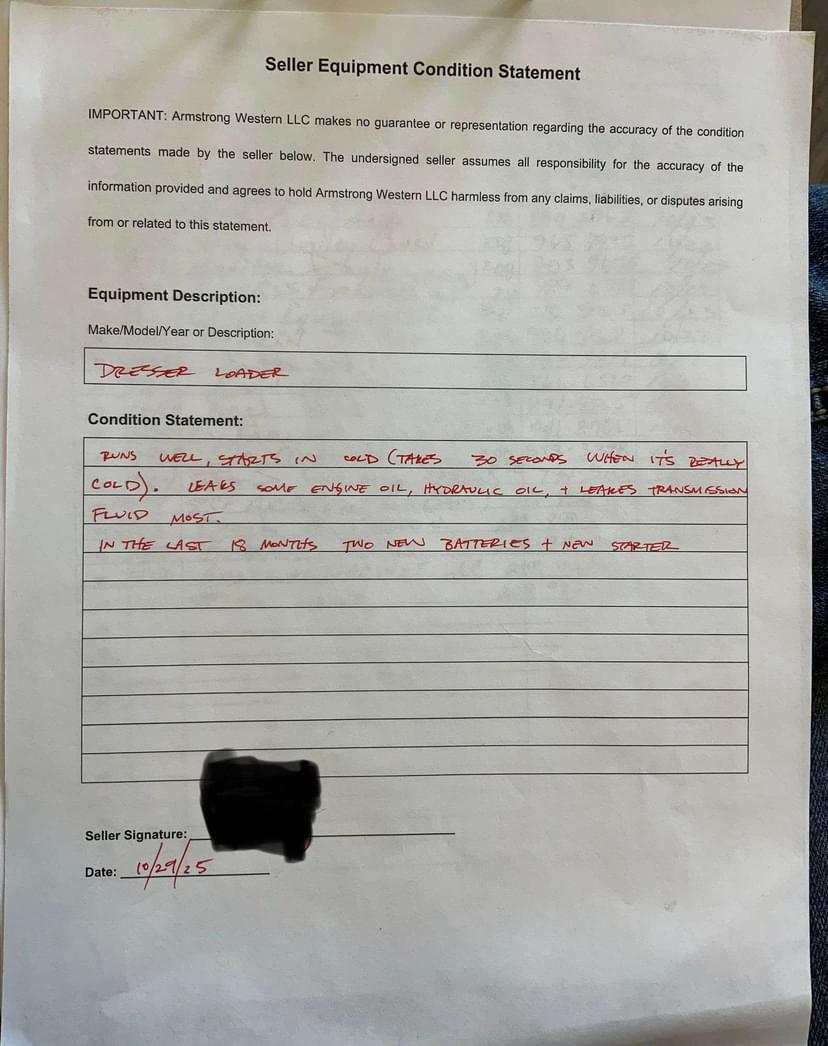 Seller Equipment Condition Statement
IMPORTANT: Armstrong Western LLC makes no guarantee or representation regarding the accuracy of the condition
statements made by the seller below. The undersigned seller assumes all responsibility for the accuracy of the
information provided and agrees to hold Armstrong Western LLC harmless from any claims, liabilities, or disputes arising
from or related to this statement.
Equipment Description:
Make/Model/Year or Description:
DRESSER LOADER
Condition Statement:
RUNS WELL, STARTS IN COLD (TAKES 30 SECONDS WHEN IT'S REALLY
COLD). LEAKS SOME ENGINE OIL, HYDRAULIC OIL, + LEAKES TRANSMISSION
FLUID MOST.
IN THE LAST 18 MONTHS TWO NEW BATTERIES + NEW STARTER
Seller Signature:
Date: 10/29/25